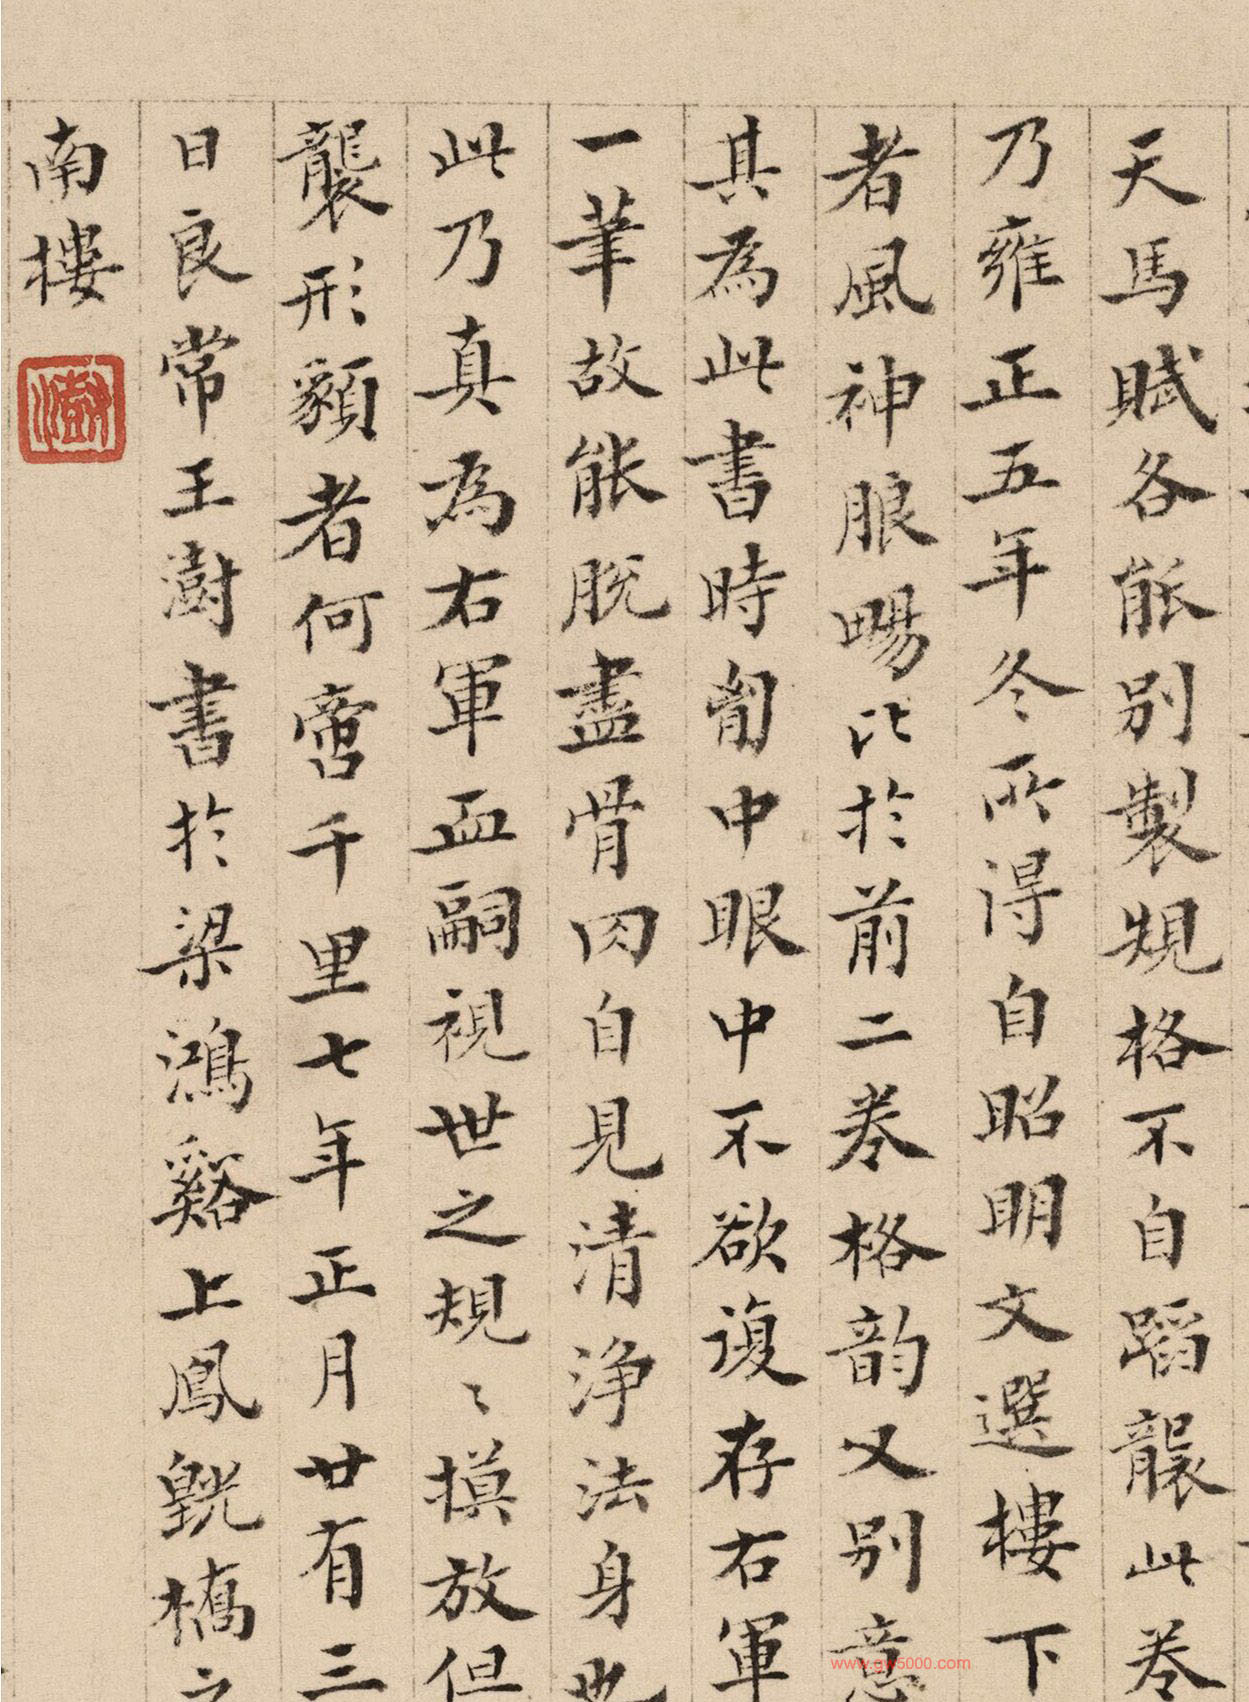 天馬賦各能別製規格不自蹈襲此卷
乃雍正五年冬所得自昭明文選樓下
者風神朖暢比於前二卷格韵又別意
其為此書時匈中眼中不欲復存右軍
一筆故能脫盡骨肉自見清淨法身也
此乃真為右軍血嗣視世之規〻摸放但
襲形䫉者何啻千里七年正月廿有三
日良常王澍書於梁鴻谿上鳳皝橋之
南樓
澍
www.gw5000.com